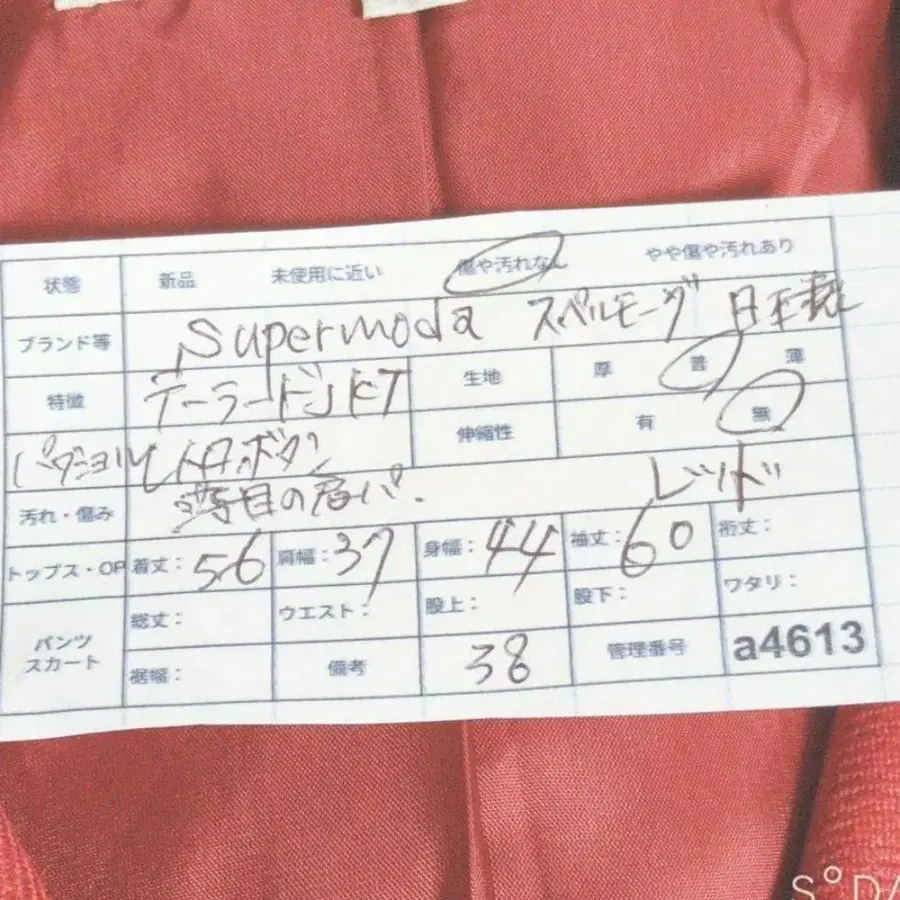 状態 新品 未使用に近い 傷や汚れなし やや傷や汚れあり
ブランド等 Supermoda スペルモーダ 日本製
特徴 テーラードJKT 生地 厚 普 薄
伸縮性 有 無
ボタン
汚れ・傷み 薄目の肩パ. レッド
トップス・OP 着丈: 56 肩幅: 37 身幅: 44 袖丈: 60 裄丈:
パンツ スカート 総丈: ウエスト: 股上: 股下: ワタリ:
裾幅: 備考 38 管理番号 a4613